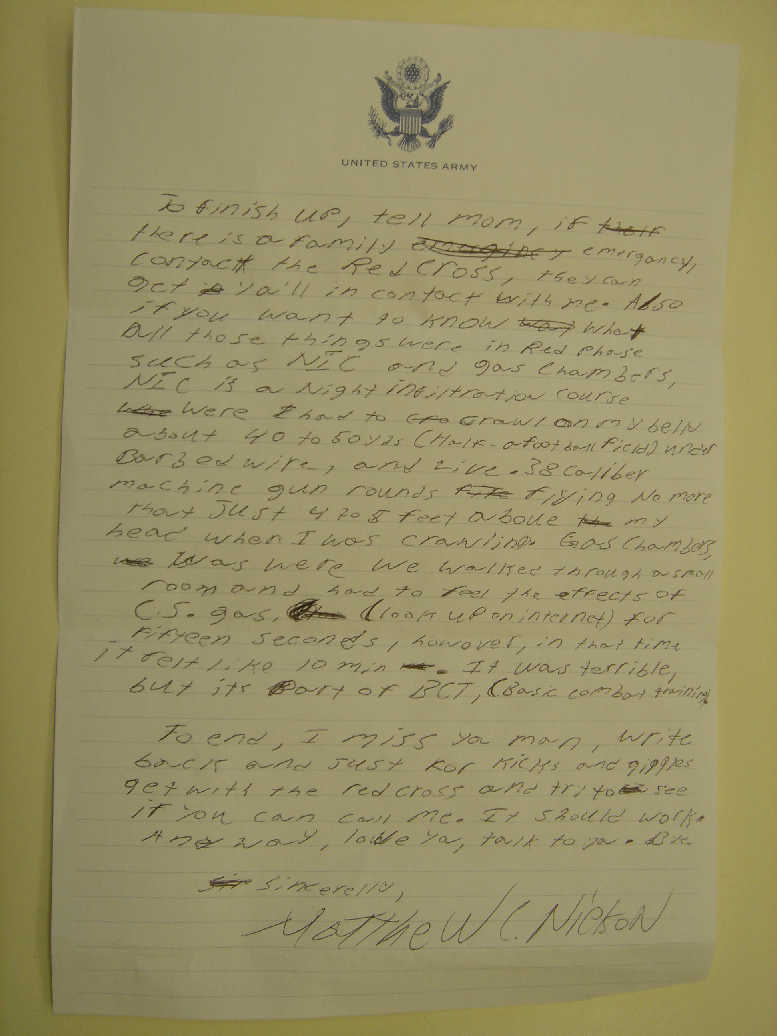 UNITED STATES ARMY
To finish up, tell mom, if
there is a family emergancy,
contact the Red Cross, they can
get ya'll in contact with me. Also
if you want to know what
all those things were in Red Phase
such as NIC and gas chambers,
NIC is a Night infiltration course
were I had to crawl on my belly
about 40 to 50 yds (Half-a football field) under
Barbed wire, and Live .38 caliber
machine gun rounds flying No more
that Just 4 to 8 feet above my
head when I was crawling. Gas Chambers,
Was were we walked through a small
room and had to feel the effects of
C.S. gas, (look up on internet) for
fifteen seconds, however, in that time
it felt like 10 min. It was terrible,
but its Part of BCT, (Basic combat training)
To end, I miss ya man, write
back and just for kicks and giggles
get with the red cross and tri to see
if you can call me. It should work.
Any way, love ya, talk to ya. Bye.
sincerelly,
Matthew C. Nielson